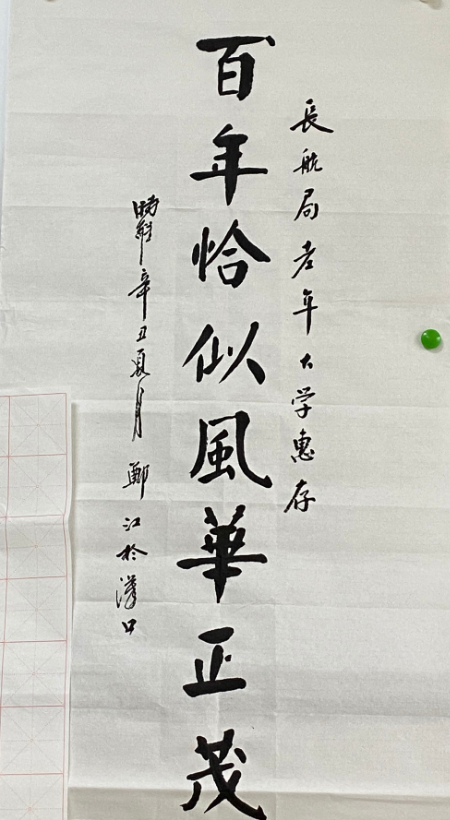 長航局老年大学惠存
百年恰似風華正茂
時辛丑夏月 鄭江於漢口